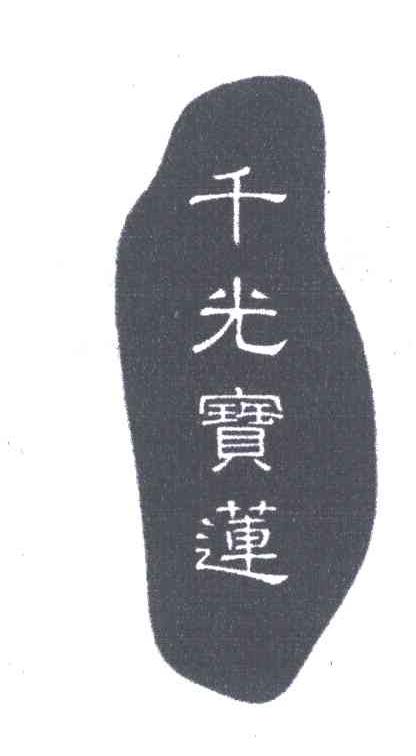 千光寶蓮